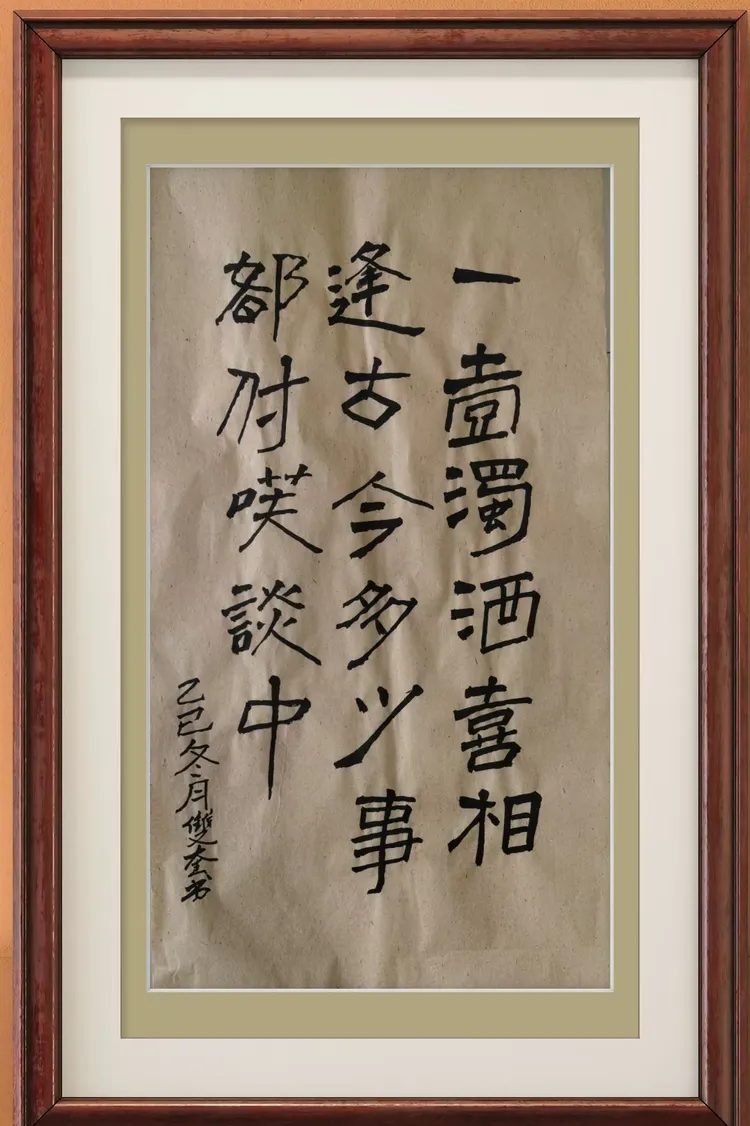 一壺濁酒喜相
逢古今多少事
都付笑談中
乙巳冬月雙奎书